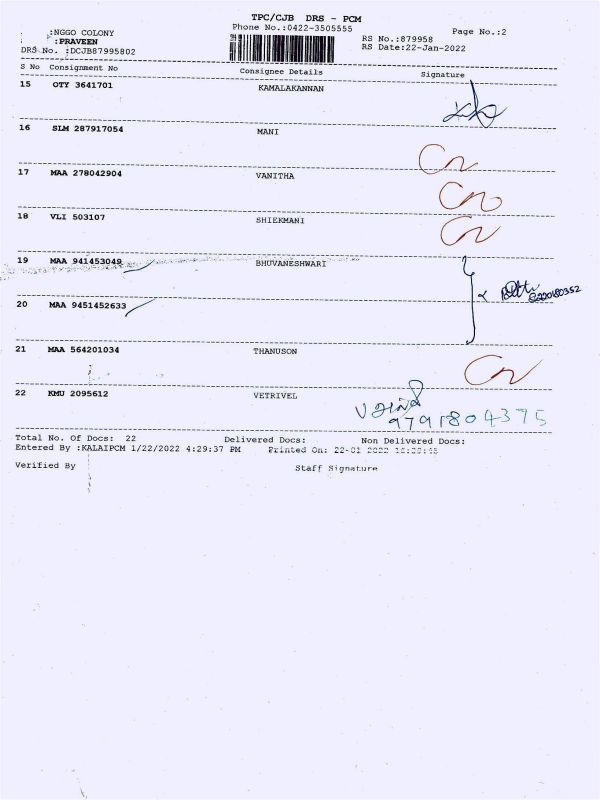 TPC/CJB DRS - PCM
:NGGO COLONY Phone No.:0422-3505555 Page No.:2
:PRAVEEN RS No.:879958
DRS No. :DCJB87995802 RS Date:22-Jan-2022
S No Consignment No Consignee Details Signature
15 OTY 3641701 KAMALAKANNAN
16 SLM 287917054 MANI
17 MAA 278042904 VANITHA
18 VLI 503107 SHIEKMANI
19 MAA 941453049 BHUVANESHWARI
20 MAA 9451452633
21 MAA 564201034 THANUSON
22 KMU 2095612 VETRIVEL
9791804375
Total No. Of Docs: 22 Delivered Docs: Non Delivered Docs:
Entered By :KALAIPCM 1/22/2022 4:29:37 PM Printed On: 22-01 2022
Verified By Staff Signature